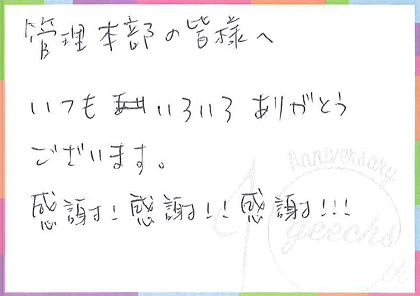 管理本部の皆様へ
いつも いろいろ ありがとう
ございます。
感謝！感謝！！感謝！！！
Anniversary
geechs